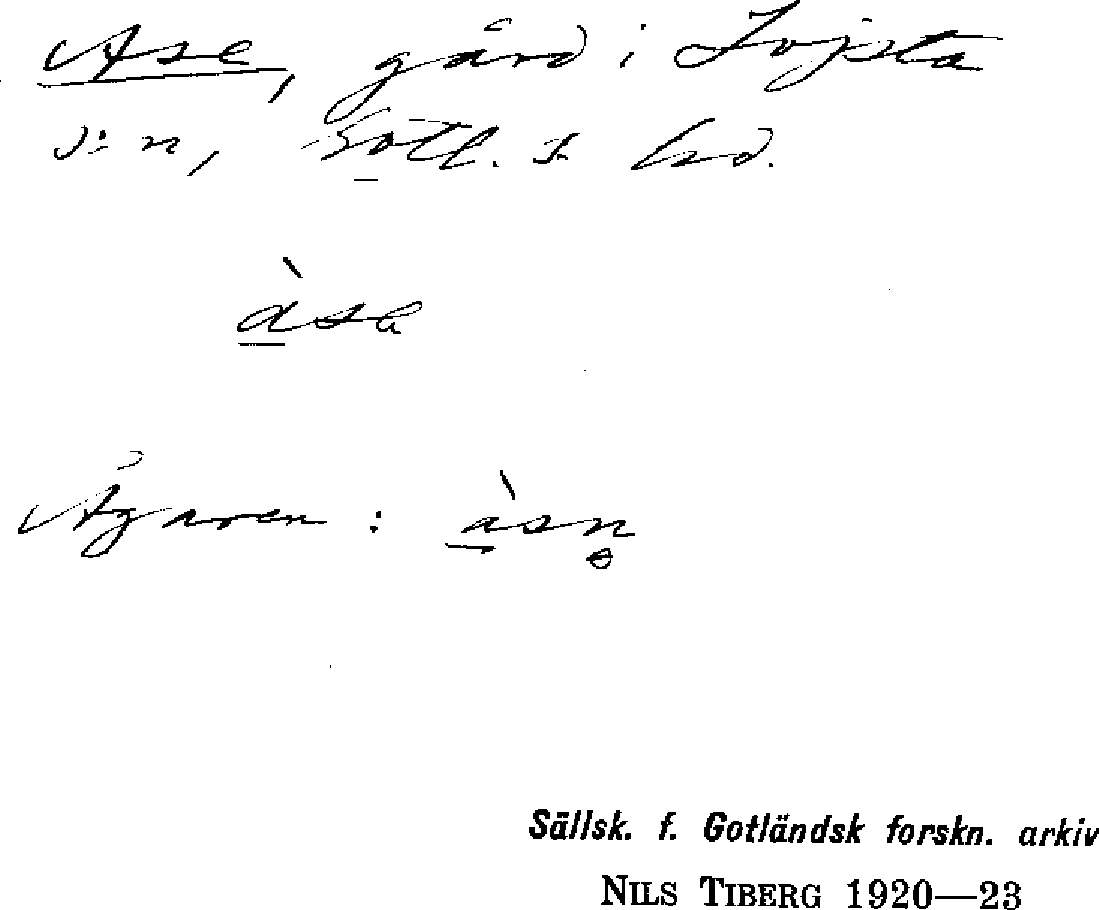 Ase, gård i Lojsta
s:n, Gotl. s. hd.
àsa
Ägaren : àsn̥
Sällsk. f. Gotländsk forskn. arkiv
NILS TIBERG 1920—23